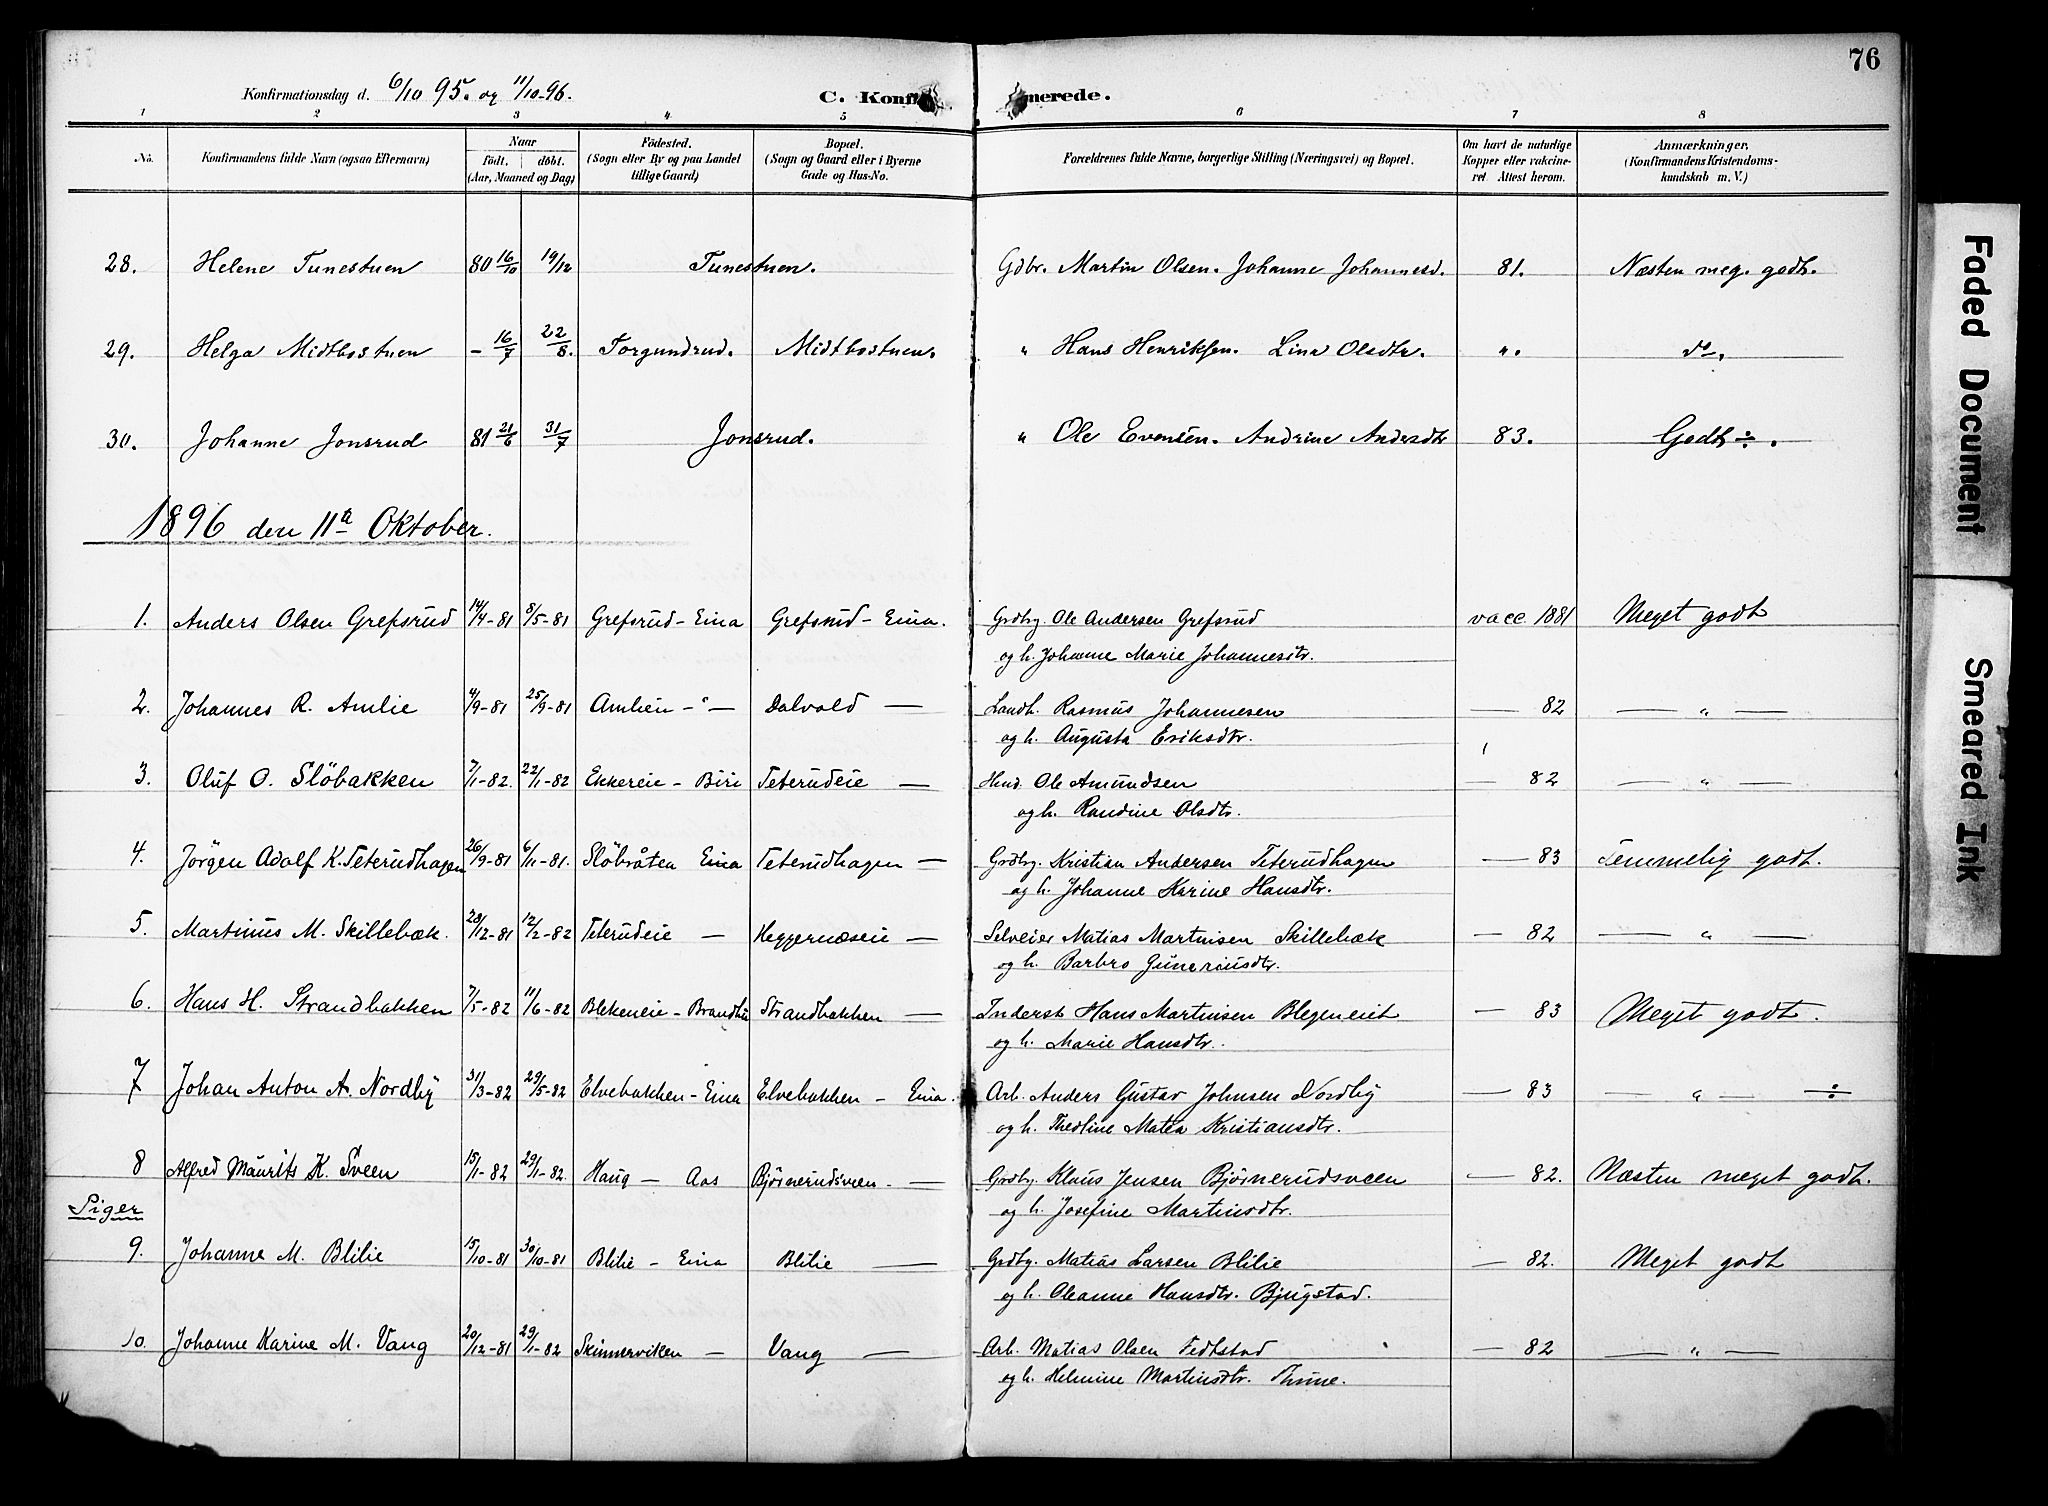 76
Konfirmationsdag d. 6/10 95. og 11/10-96. C. Konfirmerede.
1 2 3 4 5 6 7 8
No. Konfirmandens fulde Navn (ogsaa Efternavn) Naar født. døbt. (Aar, Maaned og Dag) Fødested. (Sogn eller By og paa Landet tillige Gaard) Bopæl. (Sogn og Gaard eller i Byerne Gade og Hus-No. Forældrenes fulde Navne, borgerlige Stilling (Næringsvei) og Bopæl. Om havt de naturlige Kopper eller vakcineret Attest herom. Anmærkninger. (Konfirmandens Kristendomskundskab m. V.)
28. Helene Tunestuen 80 16/10 19/12 Tunestuen. Gdbr. Martin Olsen. Johanne Johannesd. 81. Næsten meg. godt.
29. Helga Midtbostuen - 16/7 22/8. Torgundrud. Midtbostuen. " Hans Henriksen. Lina Olsdtr. ". do.
30. Johanne Jonsrud 81 21/6 31/7 Jonsrud. " Ole Evensen. Andrine Andersdtr 83. Godt ÷.
1896 den 11te Oktober.
1. Anders Olsen Grefsrud 14/4-81 8/5-81 Grefsrud-Eina Grefsrud-Eina. Grdbg. Ole Andersen Grefsrud vacc. 1881 Meget godt
og h. Johanne Marie Johannesdtr.
2. Johannes R. Amlie 4/9-81 25/9-81 Amlien -"- Dalvold — Landh. Rasmus Johannesen — 82 — " —
og h. Augusta Eriksdtr.
3. Oluf O. Slöbakken 7/1-82. 22/1-82 Ekkereie - Biri Teterudeie — Husd. Ole Amundsen — 82 — " —
og h. Randine Olsdtr.
4. Jörgen Adolf K. Teterudhagen 26/9-81 6/11-81. Slöbråten Eina Teterudhagen — Grdbg. Kristian Andersen Teterudhagen — 83 Temmelig godt.
og h. Johanne Karine Hansdtr.
5. Martinus M. Skillebæk. 28/12-81 12/2-82 Teterudeie — Heggernæseie — Selveier Matias Martinsen Skillebæk — 82 — " —
og h. Barbro Guneriusdtr.
6. Hans H. Strandbakken 7/5-82 11/6-82 Blekeneie - Brandbu Strandbakken — Inderst Hans Martinsen Blegeneiet — 83 Meget godt.
og h. Marie Hansdtr.
7 Johan Anton A. Nordby 31/3-82 29/5-82 Elvebakken-Eina Elvebakken - Eina. Arb. Anders Gustav Johnsen Nordby — 83 — " — ÷
og h. Thedline Matea Kristiansdtr.
8 Alfred Maurits K. Sveen 15/1-82 29/1-82. Haug — Aas Bjørnerudsveen - — Grdbg. Klaus Jensen Bjørnerudsveen — 82. Næsten meget godt.
og h. Josefine Martinsdtr.
Piger
9. Johanne M. Blilie 15/10-81 30/10-81 Blilie - Eina Blilie — Grdbg. Matias Larsen Blilie — 82. Meget godt
og h. Oleanne Hansdtr. Bjugstad.
10. Johanne Karine M. Vang 20/12-81 29/1-82 Skinnerviken — Vang — Arb. Matias Olsen Fedtstad — 82 — " —
og h. Helmine Martinsdtr. Thune.
Faded Document
Smeared Ink